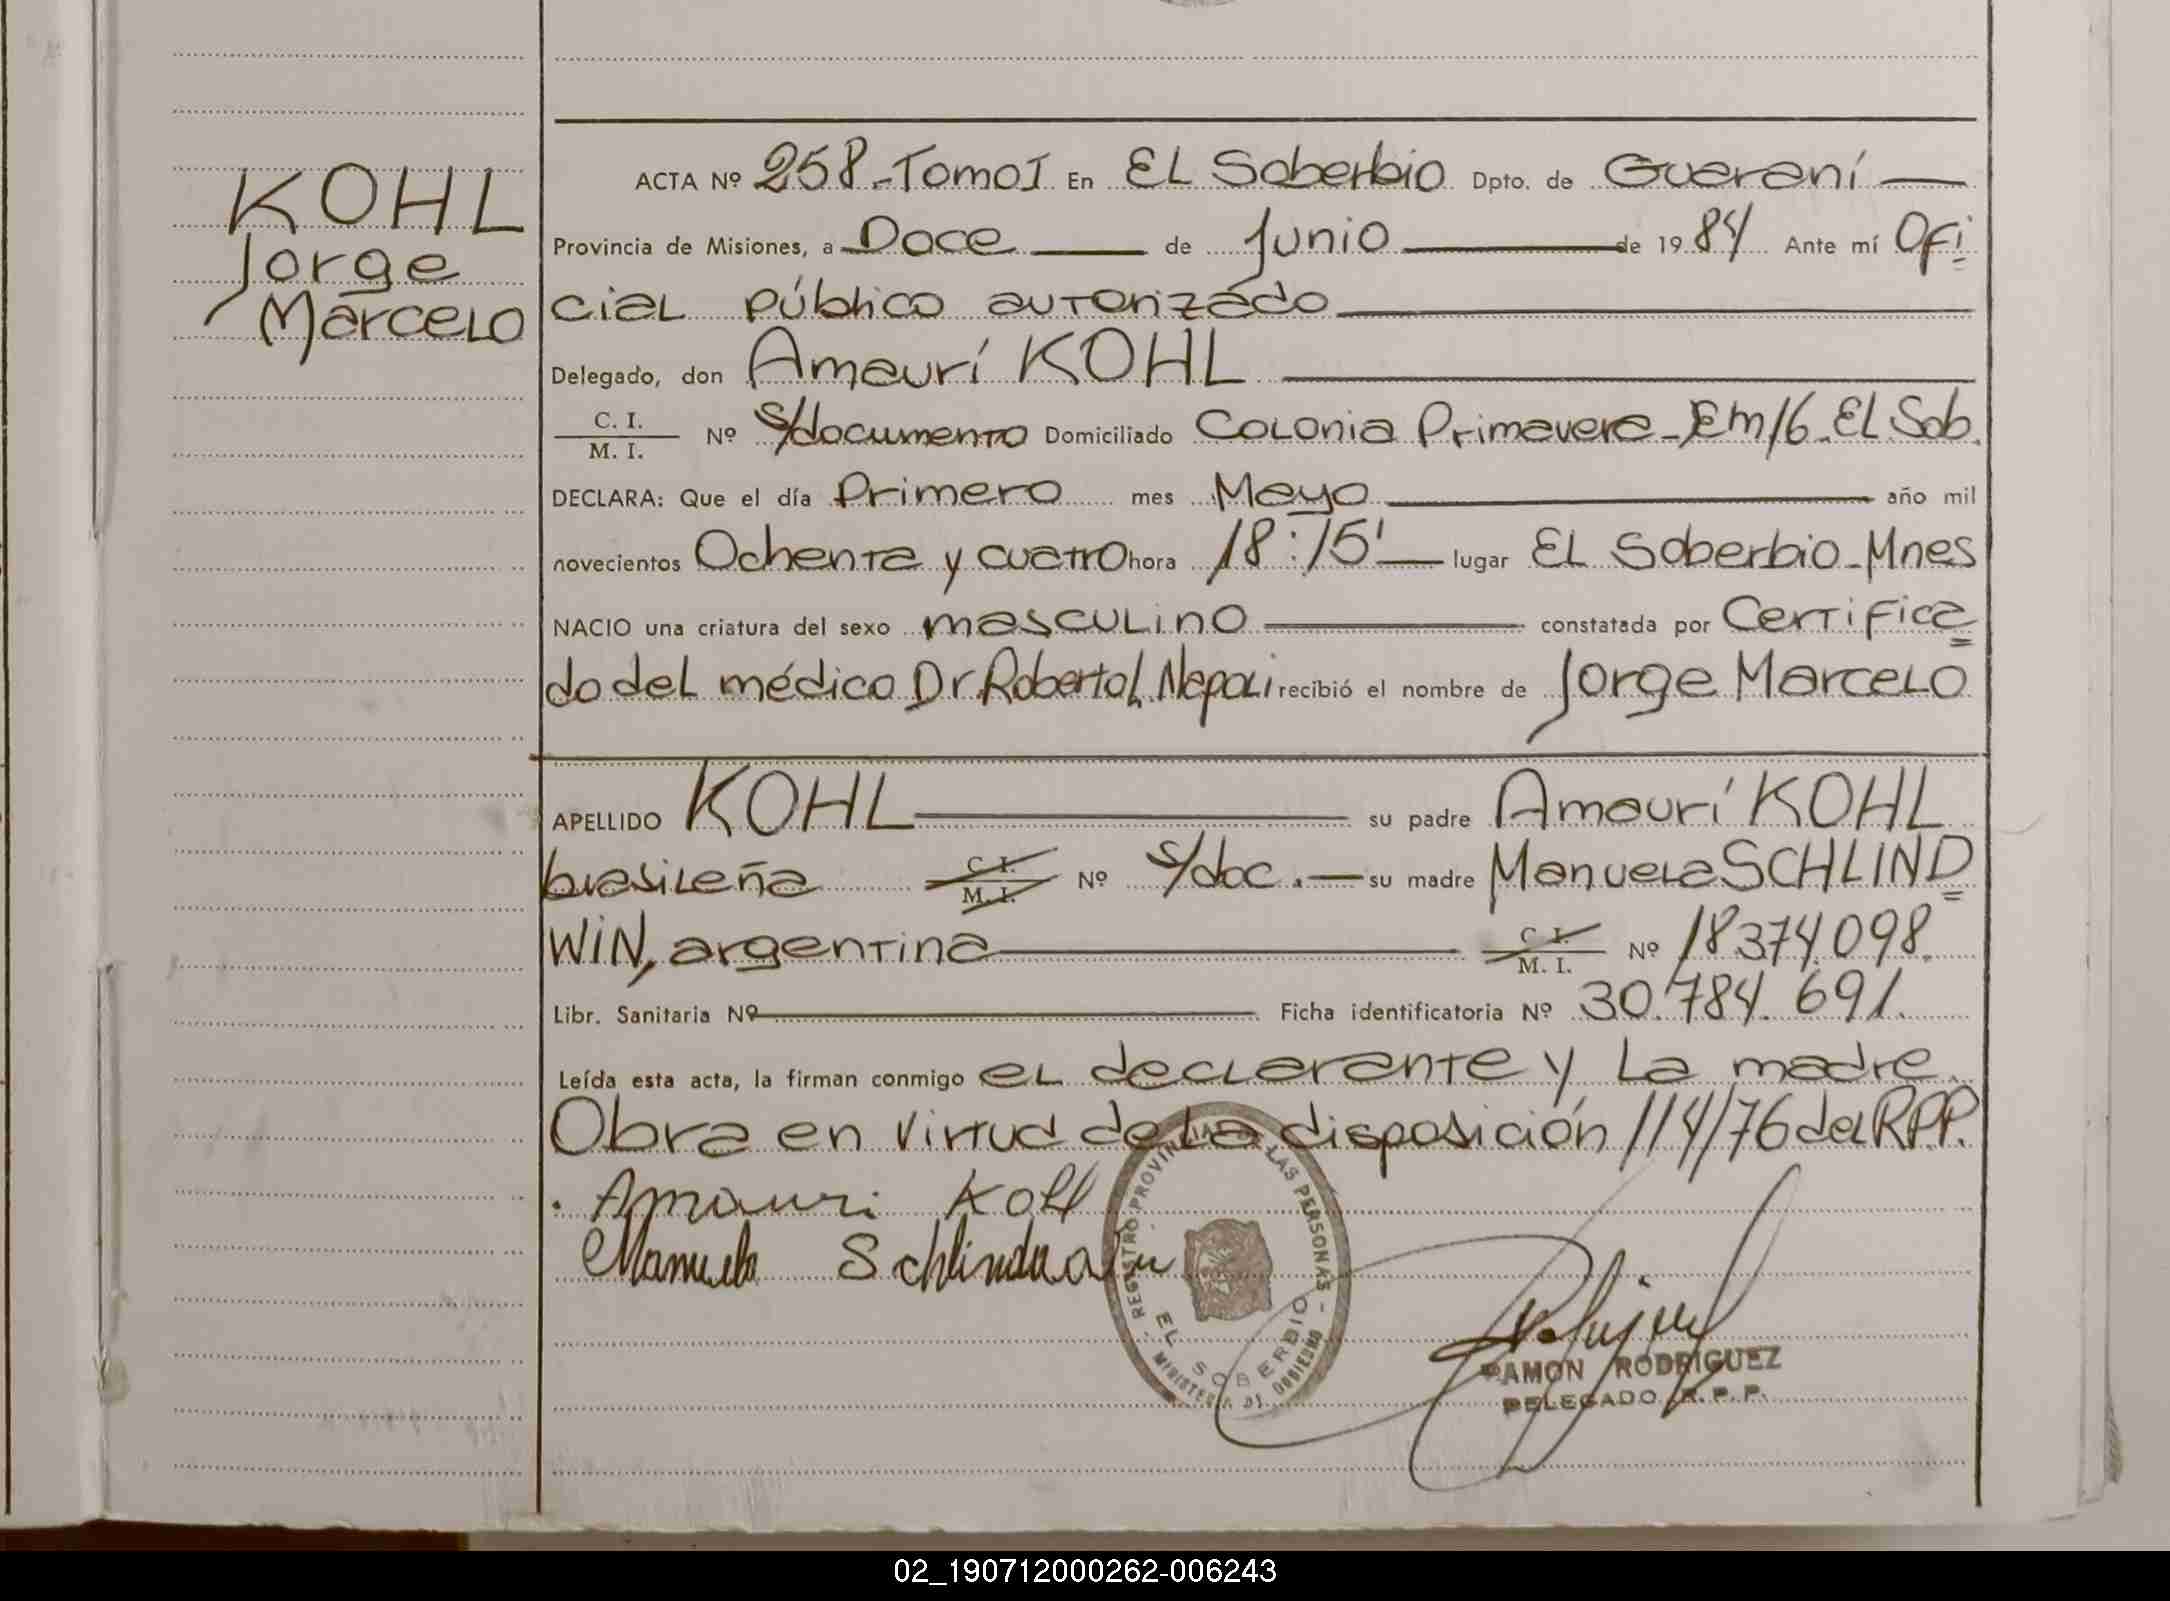 KOHL
Jorge
Marcelo
ACTA Nº 258-Tomo I En EL Soberbio Dpto. de Guaraní
Provincia de Misiones, a Doce de Junio de 1984 Ante mí Ofi
cial público autorizado
Delegado, don Amaurí KOHL
C. I.
M. I. Nº s/documento Domiciliado Colonia Primavera-Km16-El Sob.
DECLARA: Que el día Primero mes Mayo año mil
novecientos Ochenta y cuatro hora 18:15' lugar El Soberbio-Mnes
NACIO una criatura del sexo masculino constatada por Certifica
do del médico Dr. Roberto L. Napoli recibió el nombre de Jorge Marcelo
APELLIDO KOHL su padre Amaurí KOHL
brasileña C. I. M. I. Nº s/doc. su madre Manuela SCHLIND
WIN, argentina C. I. M. I. Nº 18.374.098.
Libr. Sanitaria Nº Ficha identificatoria Nº 30.784.691.
Leída esta acta, la firman conmigo el declarante y la madre.
Obra en virtud de la disposición 114/76 del R.P.P.
Amauri Kohl
Manuela Schlindwein
REGISTRO PROVINCIAL DE LAS PERSONAS
EL SOBERBIO
MINISTERIO DE GOBIERNO
RAMON RODRIGUEZ
DELEGADO R. P. P.
02_190712000262-006243